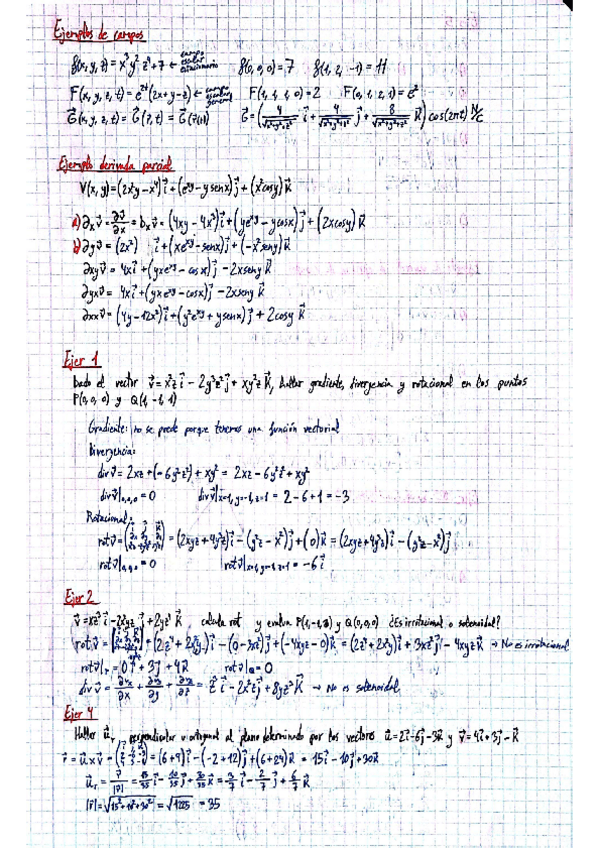 Ejemplos de campos
f(x, y, z) = x³y² z⁴ + 7 ← campo escalar estacionario f(0, 0, 0) = 7 f(1, 2, -1) = 11
F(x, y, z, t) = e^zt (2x + y - z) ← campo escalar general F(1, 1, 1, 0) = 2 F(0, 1, 2, 1) = e²
G⃗(x, y, z, t) = G⃗(r⃗, t) = G⃗ G⃗ = (4/√x²+y²+z² i⃗ + 4/√x²+y²+z² j⃗ + 8/√x²+y²+z² k⃗) cos(2πt) N/C
Ejemplo derivada parcial
V(x, y) = (2x²y - x⁴) i⃗ + (e^xy - y senx) j⃗ + (x² cosy) k⃗
a) ∂x v⃗ = ∂v⃗/∂x = bx v⃗ = (4xy - 4x³) i⃗ + (ye^xy - y cosx) j⃗ + (2x cosy) k⃗
b) ∂y v⃗ = (2x²) i⃗ + (xe^xy - senx) j⃗ + (-x² seny) k⃗
∂xy v⃗ = 4x i⃗ + (yxe^xy - cosx) j⃗ - 2x seny k⃗
∂yx v⃗ = 4x i⃗ + (yxe^xy - cosx) j⃗ - 2x seny k⃗
∂xx v⃗ = (4y - 12x²) i⃗ + (y²e^xy + y senx) j⃗ + 2 cosy k⃗
Ejer 1
Dado el vector v⃗ = x²z i⃗ - 2y³z² j⃗ + xy²z k⃗, hallar gradiente, divergencia y rotacional en los puntos
P(0, 0, 0) y Q(1, -1, 1)
Gradiente: no se puede porque tenemos una función vectorial
Divergencia:
div v⃗ = 2xz + (-6y²z²) + xy² = 2xz - 6y²z² + xy²
div v⃗|0,0,0 = 0 div v⃗|x=1, y=-1, z=1 = 2 - 6 + 1 = -3
Rotacional:
rot v⃗ = = (2xyz + 4y³z) i⃗ - (y²z - x²) j⃗ + (0) k⃗ = (2xyz + 4y³z) i⃗ - (y²z - x²) j⃗
rot v⃗|0,0,0 = 0 rot v⃗|x=1, y=-1, z=1 = -6 i⃗
Ejer 2
v⃗ = xz³ i⃗ - 2x²yz j⃗ + 2yz⁴ k⃗, calcula rot y evalua P(1, -1, ) y Q(0,0,0) ¿Es irrotacional o solenoidal?
rot v⃗ = = (2z⁴ + 2x²y) i⃗ - (0 - 3xz²) j⃗ + (-4xyz - 0) k⃗ = (2z⁴ + 2x²y) i⃗ + 3xz² j⃗ - 4xyz k⃗ → No es irrotacional
rot v⃗|P = 0 i⃗ + 3 j⃗ + 4 k⃗ rot v⃗|Q = 0
div v⃗ = ∂vx/∂x + ∂vy/∂y + ∂vz/∂z = z³ i⃗ - 2x²z j⃗ + 8yz³ k⃗ → No es solenoidal
Ejer 4
Hallar u⃗r perpendicular u ortogonal al plano determinado por los vectores u⃗ = 2i⃗ - 6j⃗ - 3k⃗ y v⃗ = 4i⃗ + 3j⃗ - k⃗
r⃗ = u⃗ x v⃗ = = (6 + 9) i⃗ - (-2 + 12) j⃗ + (6 + 24) k⃗ = 15 i⃗ - 10 j⃗ + 30 k⃗
u⃗r = r⃗/|r⃗| = 15/35 i⃗ - 10/35 j⃗ + 30/35 k⃗ = 3/7 i⃗ - 2/7 j⃗ + 6/7 k⃗
|r⃗| = √15² + 10² + 30² = √1225 = 35